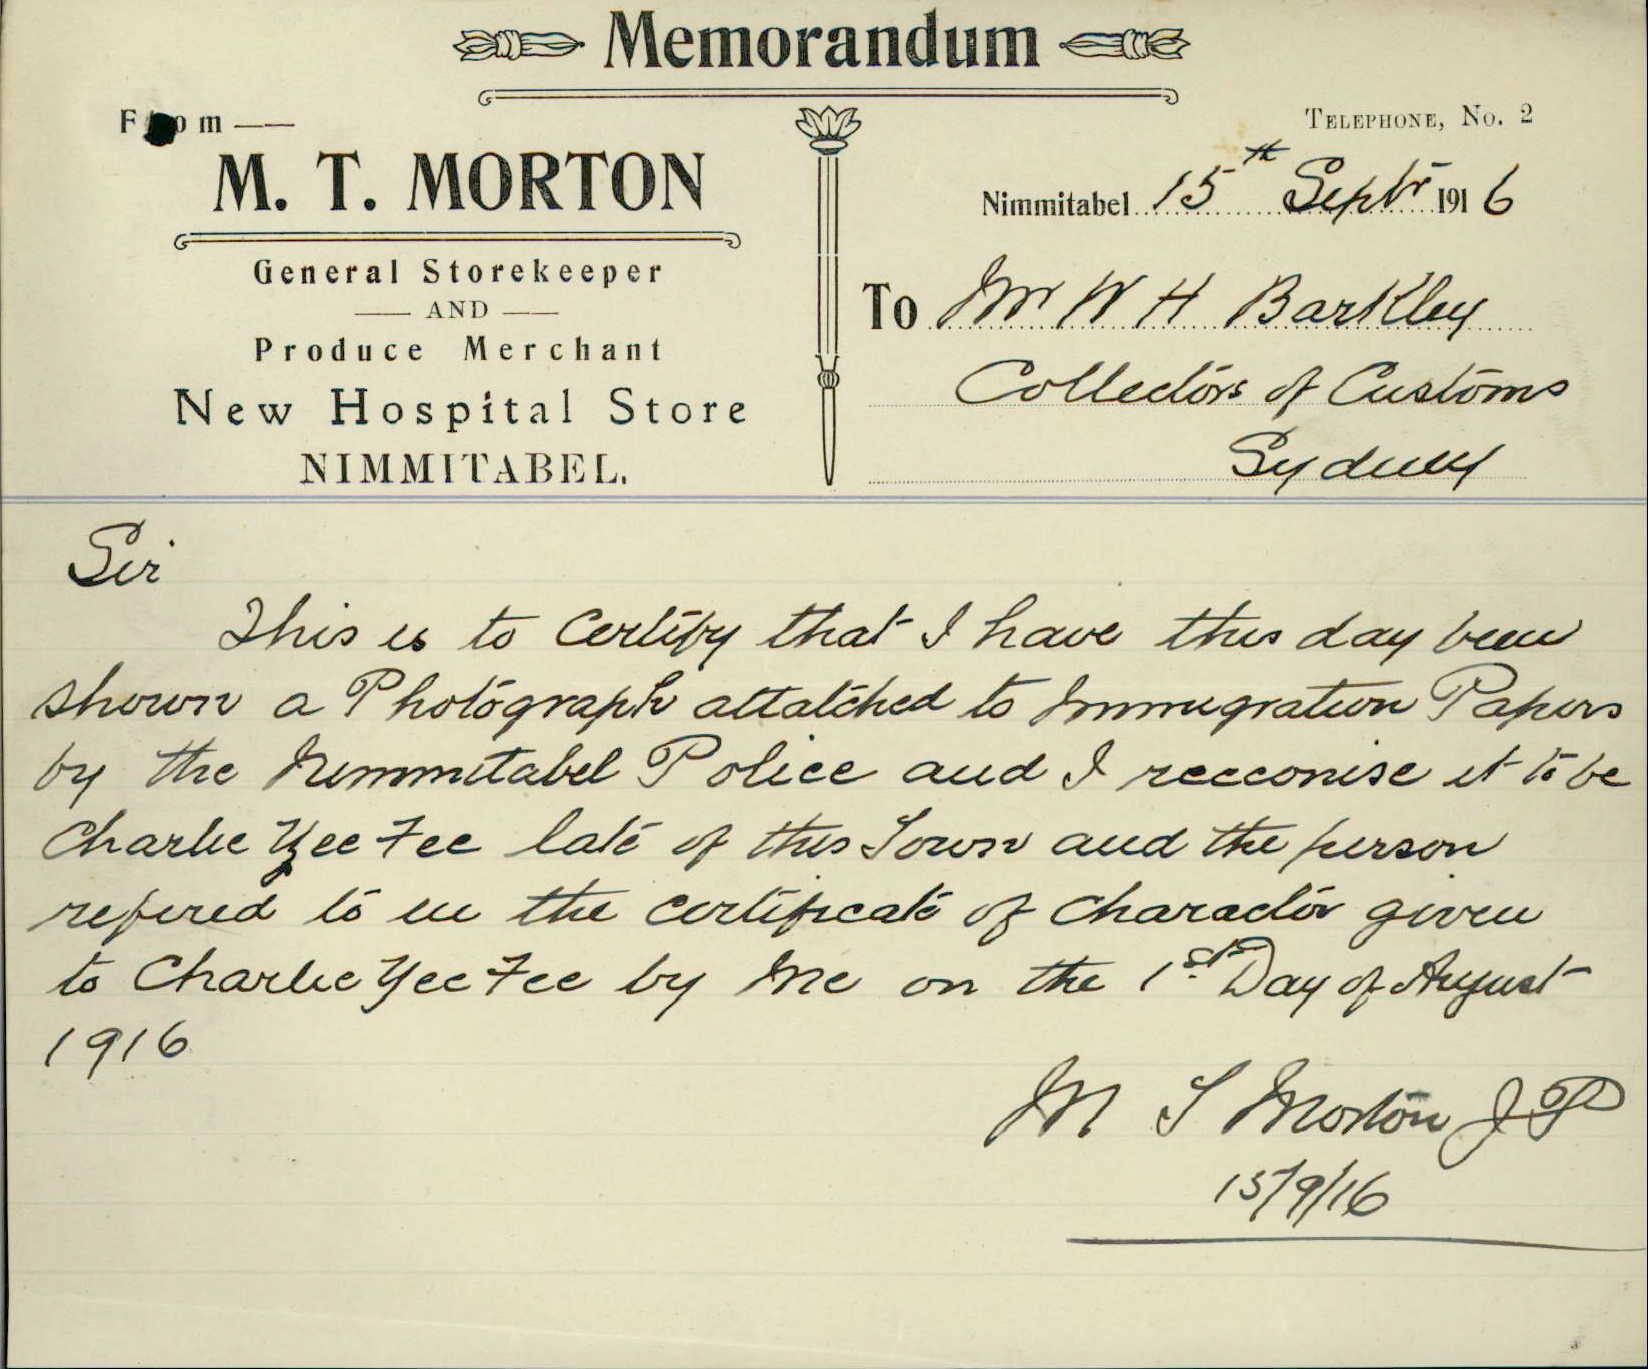 Memorandum
From —
TELEPHONE, No. 2
M. T. MORTON
Nimmitabel 15th Septr 1916
General Storekeeper
To Mr W H Barkley
— AND —
Produce Merchant
Collectors of Customs
New Hospital Store
Sydney
NIMMITABEL.
Sir
This is to Certify that I have this day been
shown a Photograph attatched to Immugration Papers
by the Nimmitabel Police and I recconise it to be
Charlie Yee Fee late of this Town and the person
refered to in the certificate of Character given
to Charlie Yee Fee by Me on the 1st Day of August
1916
M T Morton JP
15/9/16